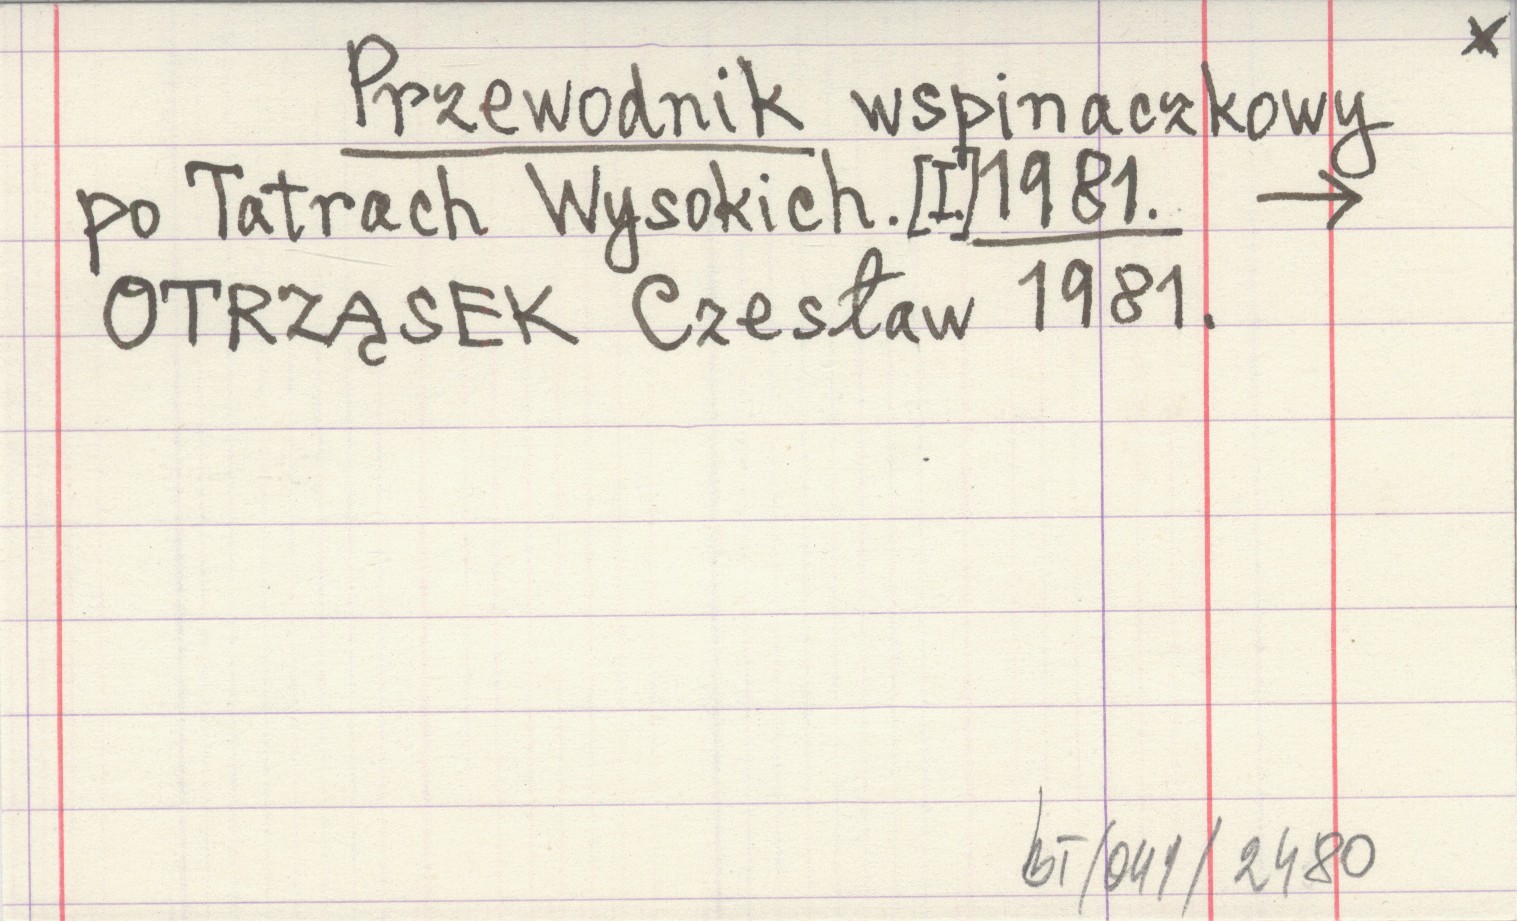 x
Przewodnik wspinaczkowy
po Tatrach Wysokich. [I.] 1981. →
OTRZĄSEK Czesław 1981.
bT/041/2480